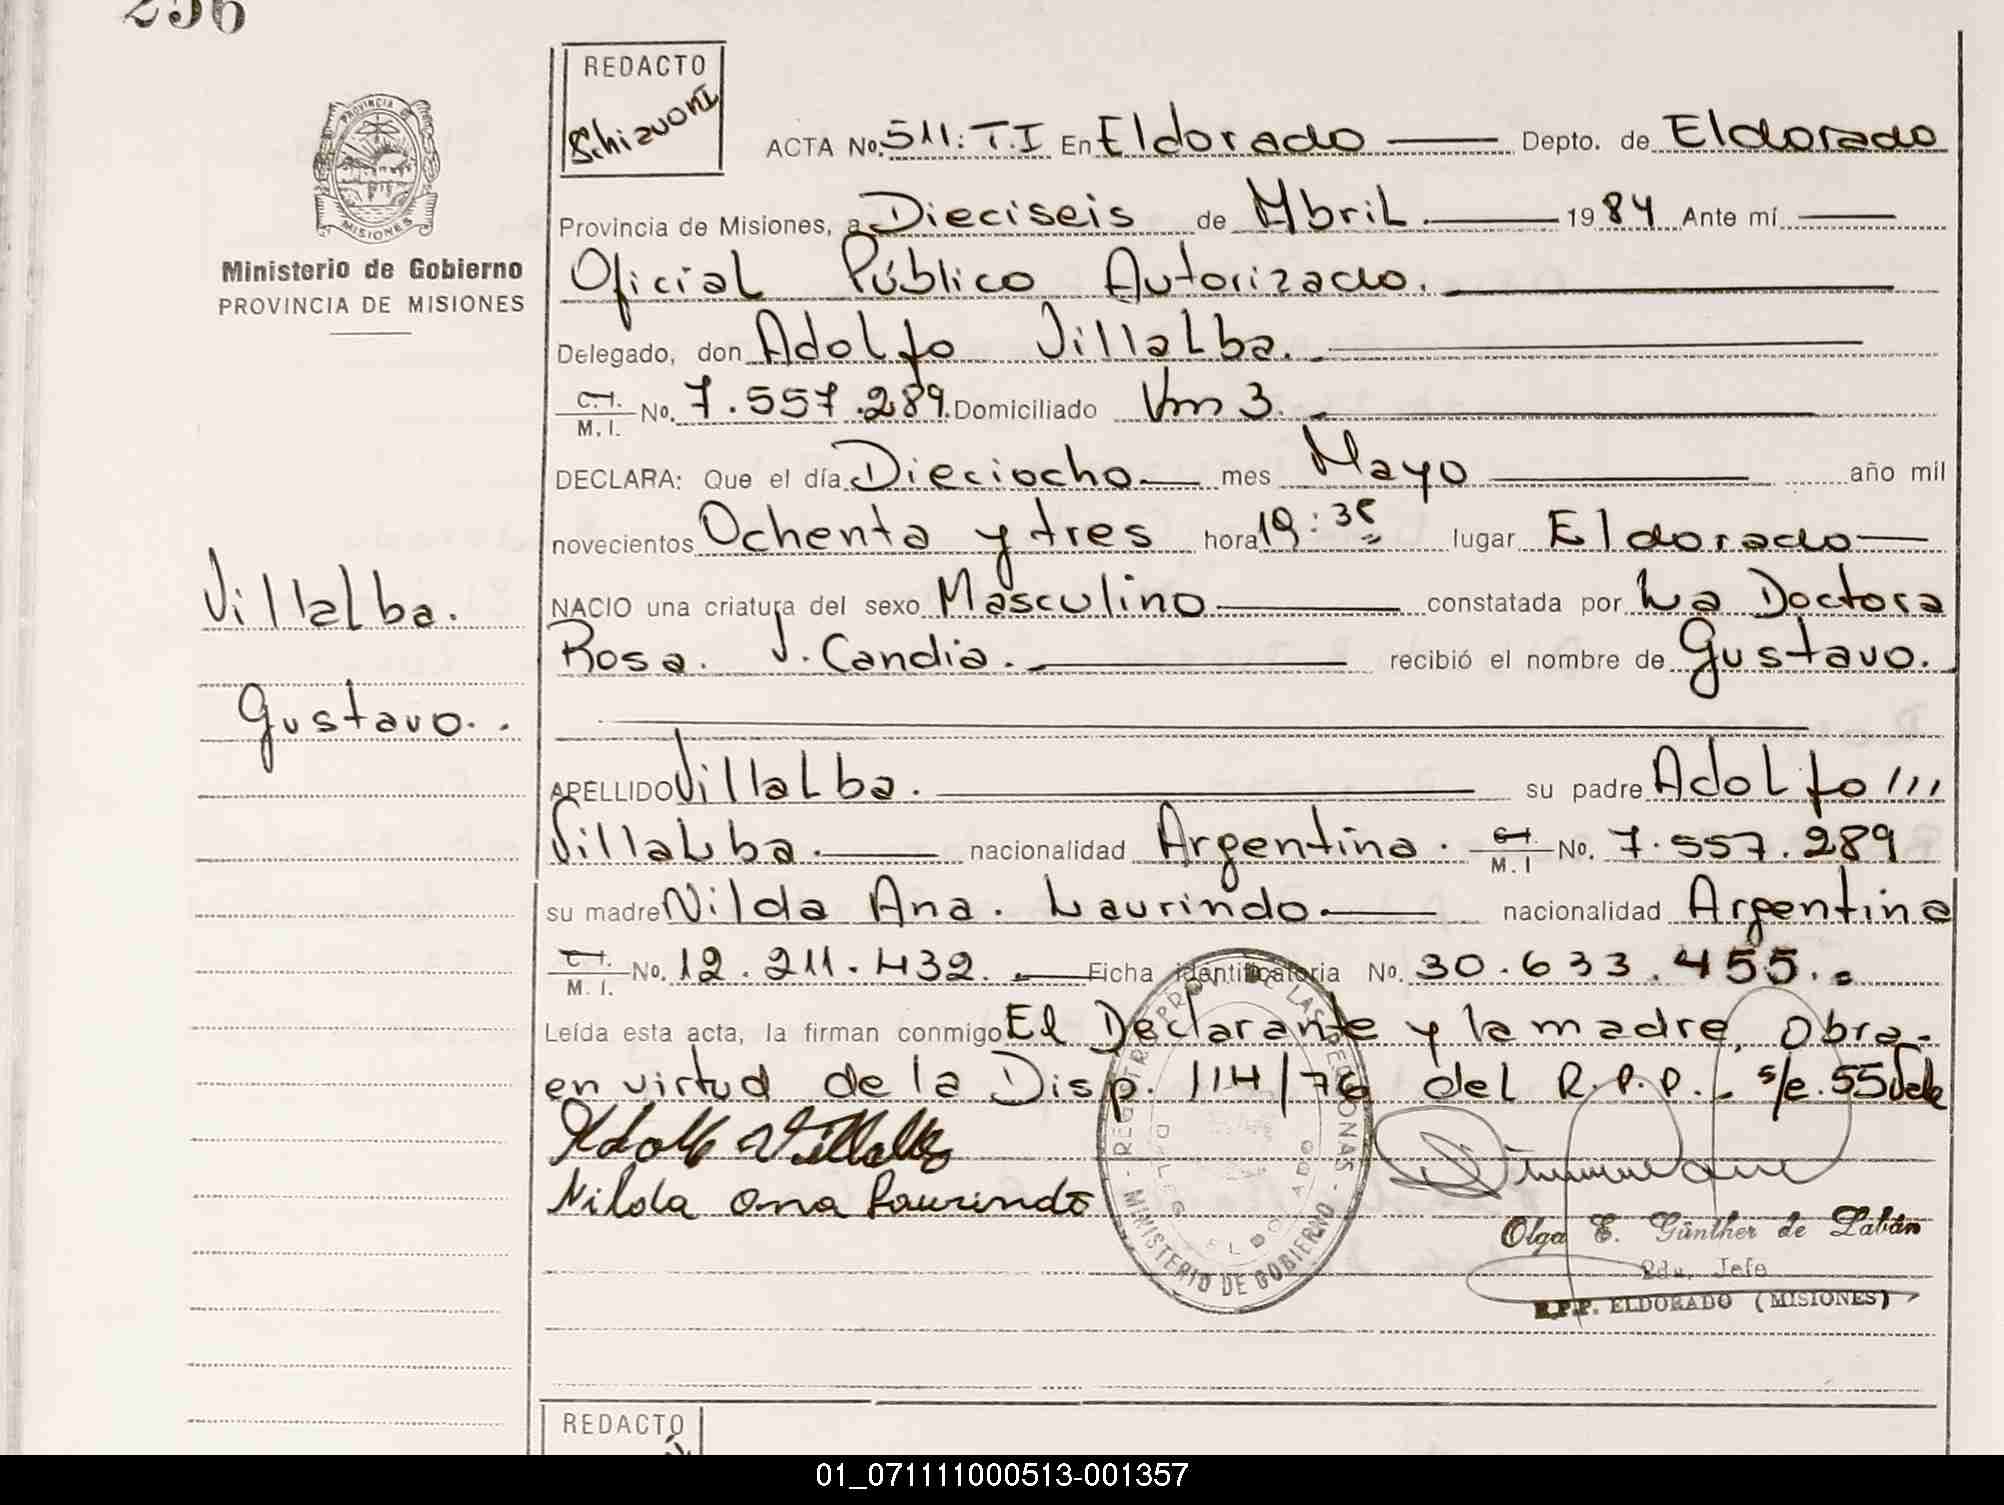 256
REDACTO
Schizvoni
ACTA No. 511: T.I En Eldorado Depto. de Eldorado
PROVINCIA DE MISIONES
Provincia de Misiones, a Dieciseis de Abril 1984 Ante mí
Ministerio de Gobierno
PROVINCIA DE MISIONES
Oficial Público Autorizado.
Delegado, don Adolfo Villalba.
C.I. M.I. No. 7.557.289. Domiciliado Km 3.
DECLARA: Que el día Dieciocho mes Mayo año mil
novecientos Ochenta y tres hora 19:35 lugar Eldorado
Villalba.
NACIO una criatura del sexo Masculino constatada por La Doctora
Rosa. J. Candia. recibió el nombre de Gustavo.
Gustavo..
APELLIDO Villalba. su padre Adolfo
Villalba. nacionalidad Argentina. C.I. M.I No. 7.557.289
su madre Nilda Ana. Laurindo. nacionalidad Argentina
C.I. M.I. No. 12.211.432. Ficha identificatoria No. 30.633.455.
Leída esta acta, la firman conmigo El Declarante y la madre, Obra.
en virtud de la Disp. 114/76 del R.P.P. s/e. 55 Vale
Adolfo Villalba
Nilda Ana Laurindo
REGISTRO PROV. DE LAS PERSONAS - MINISTERIO DE GOBIERNO -
ELDORADO
Olga E. Günther de Labán
2da. Jefe
R.P.P. ELDORADO (MISIONES)
REDACTO
01_071111000513-001357